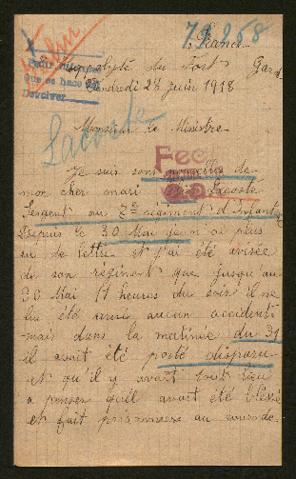 79258
France
du Fort Gard
Vendredi 28 Juin 1918
que se hace
Devolver
Lacoste
Monsieur le Ministre
Je suis sans nouvelles de
mon cher mari Lacoste
Sergent au 7e régiment d'Infant
Depuis le 30 Mai je n'ai plus
eu de lettre et j'ai été avisée
de son régiment que jusqu'au
30 Mai 11 heures du soir il ne
lui été arrivé aucun accident
mais dans la matinée du 31
il avait été porté disparu
et qu'il y avait tout lieu
a penser qu'il avait été blessé
et fait prisonnier au cours de